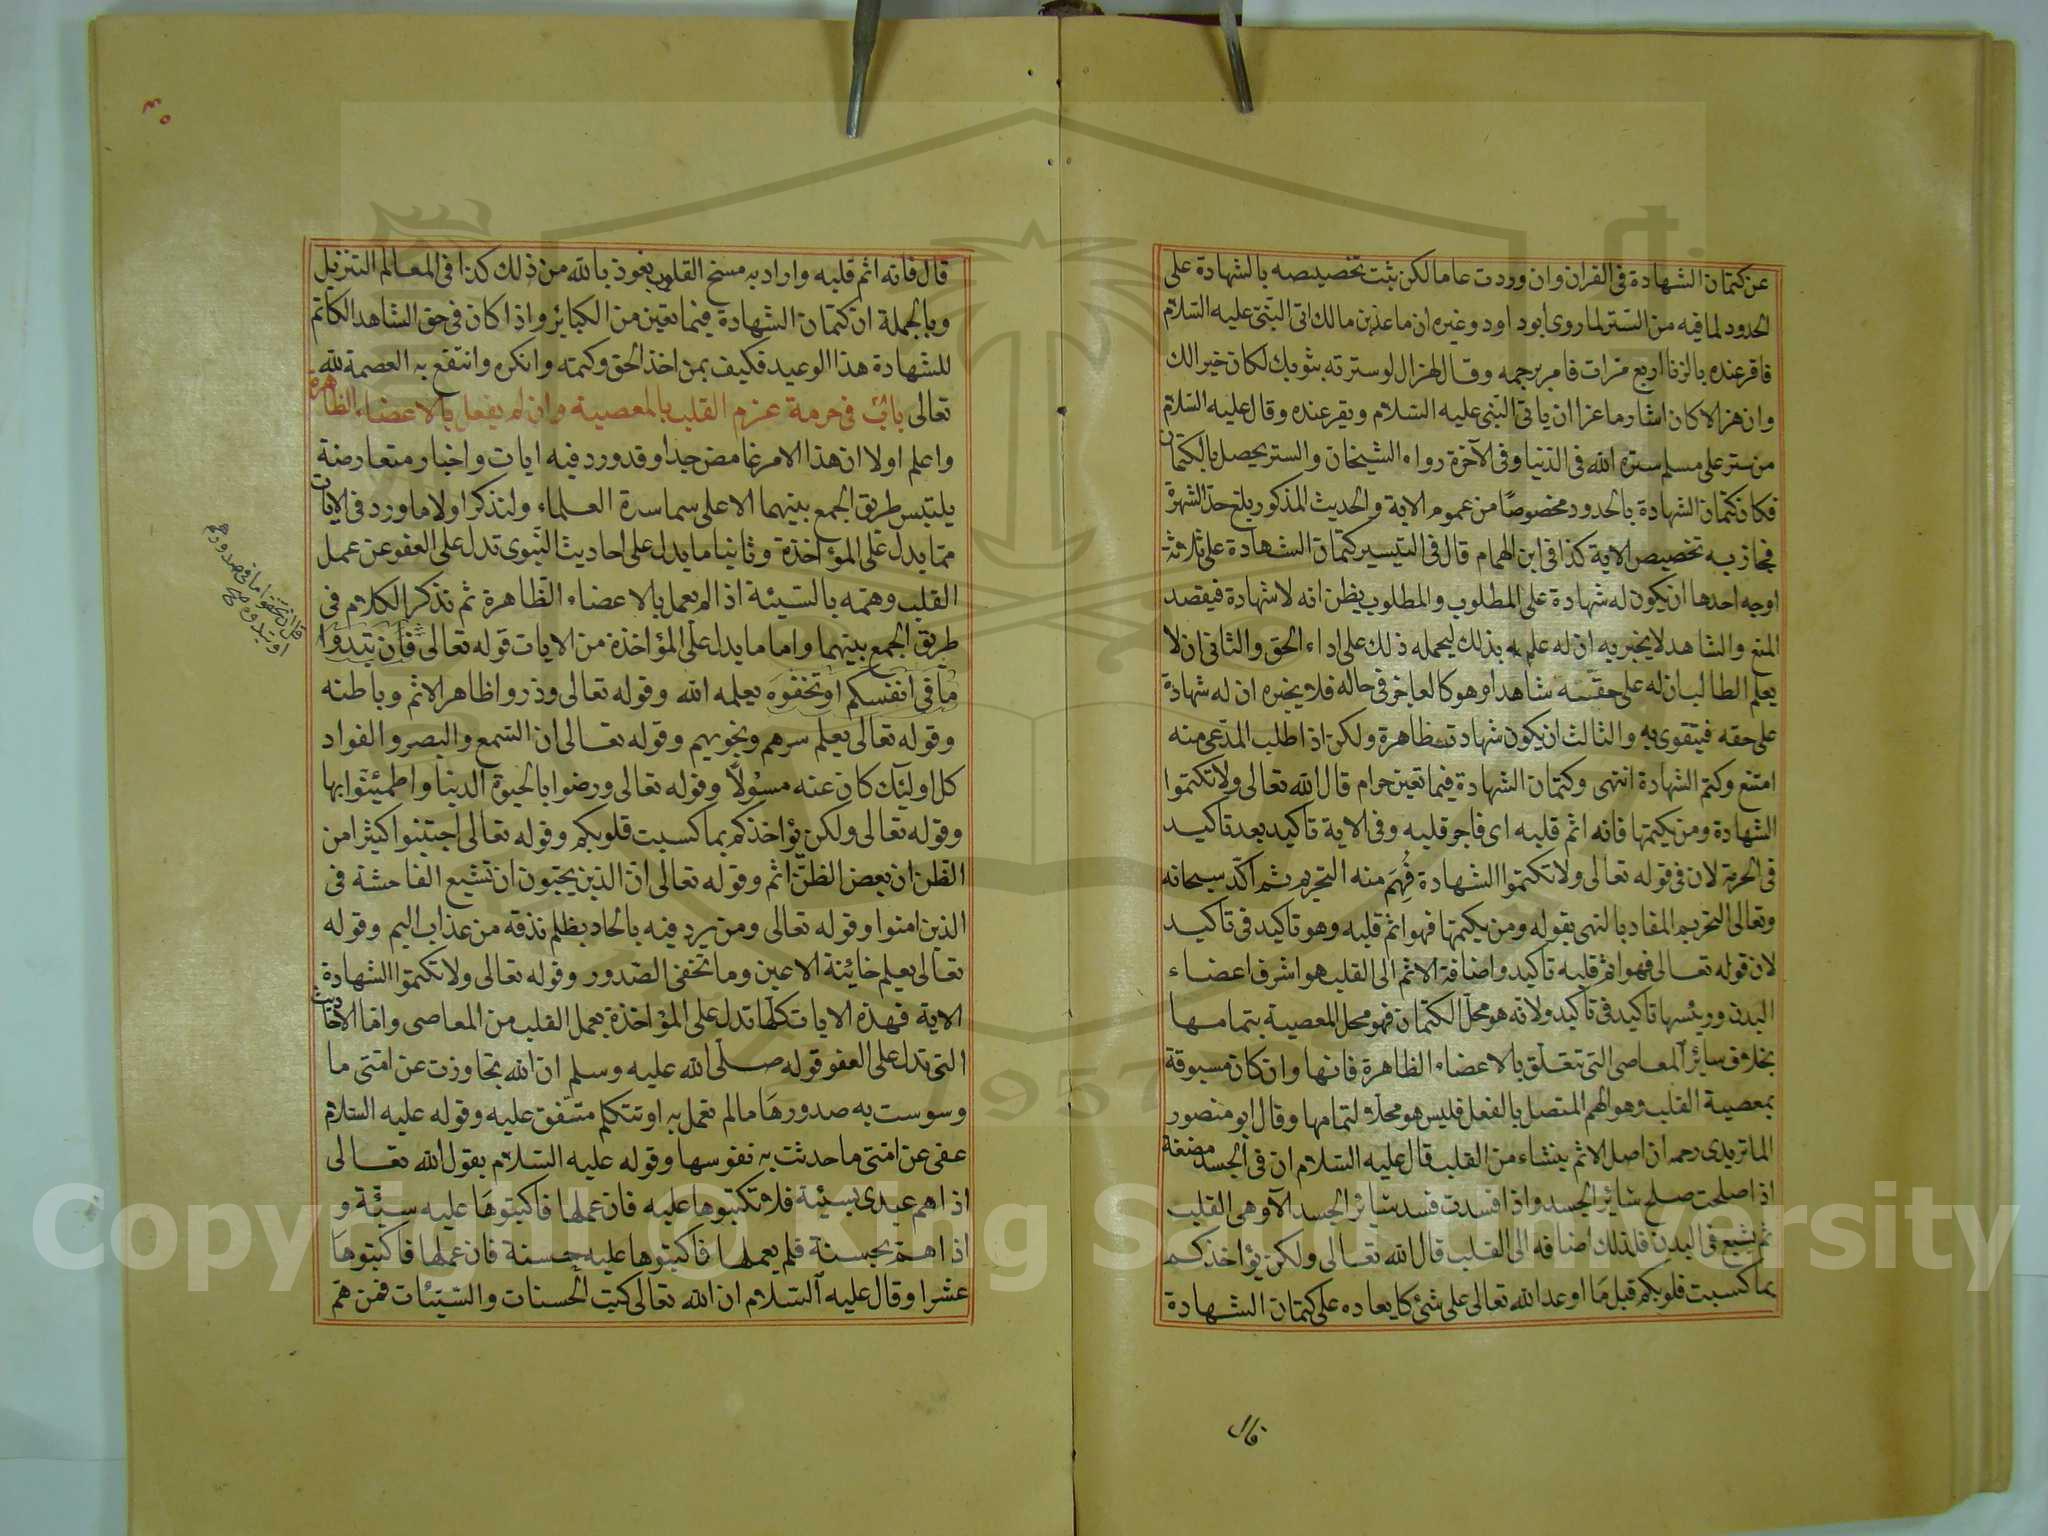 عن كتمان الشهادة فى القران وان وردت عاما لكن ثبت تخصيصه بالشهادة على
الحدود لما فيه من الستر لما روى ابو داود وغيره ان ماعذ بن مالك اتى النبى عليه السلام
فاقر عنده بالزنا اربع مرات فامر برجمه وقال لهزال لو سترته بثوبك لكان خيرا لك
وان هزالا كان اشار ماعزا ان ياتى النبى عليه السلام ويقر عنده وقال عليه السلام
من ستر على مسلم ستره الله فى الدنيا وفى الآخرة رواه الشيخان والستر يحصل بالكتمان
فكان كتمان الشهادة بالحدود مخصوصا من عموم الاية والحديث المذكور بلغ حد الشهرة
فجاز به تخصيص الاية كذا فى ابن الهمام قال فى التيسير كتمان الشهادة على ثلاثة
اوجه احدها ان يكون له شهادة على المطلوب والمطلوب يظن انه لا شهادة فيقصد
المنع والشاهد لا يخبر به ان له عليه بذلك ليحمله ذلك على اداء الحق والثانى ان لا
يعلم الطالب ان له على حقه شاهدا وهو كالعاجز فى حاله فلا يخبره ان له شهادة
على حقه فيتقوى به والثالث ان يكون شهادته ظاهرة ولكن اذا طلب المدعى منه
امتنع وكتم الشهادة انتهى وكتمان الشهادة فيما تعين حرام قال الله تعالى ولا تكتموا
الشهادة ومن يكتمها فانه اثم قلبه اى فاجر قلبه وفى الاية تاكيد بعد تاكيد
فى الحرمة لان فى قوله تعالى ولا تكتموا الشهادة فُهِمَ منه التحريم ثم اكد سبحانه
وتعالى التحريم المفاد بالنهى بقوله ومن يكتمها فهو اثم قلبه وهو تاكيد فى تاكيد
لان قوله تعالى فهو اثم قلبه تاكيد واضافة الاثم الى القلب هو اشرف اعضاء
البدن ورئيسها تاكيد فى تاكيد ولانه هو محل الكتمان فهو محل المعصية بتمامها
بخلاف سائر المعاصى التى تتعلق بالاعضاء الظاهرة فانها وان كان مسبوقة
بمعصية القلب وهو الهم المتصل بالفعل فليس هو محلا لتمامها وقال ابو منصور
الماتريدى رحمه ان اصل الاثم ينشاء من القلب قال عليه السلام ان فى الجسد مضغة
اذا صلحت صلح سائر الجسد واذا فسدت فسد سائر الجسد الا وهى القلب
ثم يشيع فى البدن فلذلك اضافه الى القلب قال الله تعالى ولكن يؤاخذكم
بما كسبت قلوبكم قيل مَا اوعد الله تعالى على شئ كايعاده على كتمان الشهادة
قال
٤٥
قال فانه اثم قلبه واراد به مسخ القلوب نعوذ بالله من ذلك كذا فى المعالم التنزيل
وبالجملة ان كتمان الشهادة فيما تعين من الكبائر واذا كان فى حق الشاهد الكاتم
للشهادة هذا الوعيد فكيف بمن اخذ الحق وكتمه وانكره وانتفع به العصمة لله
تعالى باب فى حرمة عزم القلب بالمعصية وان لم يفعل بالاعضاء الظاهرة
واعلم اولا ان هذا الامر غامض جدا وقد ورد فيه ايات واخبار متعارضة
يلتبس طريق الجمع بينهما الا على سماسرة العلماء ولنذكر اولا ما ورد فى الايات
مما يدل على المؤاخذة وثانيا ما يدل على احاديث النبوى تدل على العفو عن عمل
القلب وهمه بالسيئة اذا لم يعمل بالاعضاء الظاهرة ثم نذكر الكلام فى
طريق الجمع بينهما واما ما يدل على المؤاخذة من الايات قوله تعالى فان تبدوا
ما فى انفسكم او تخفوه يعلمه الله وقوله تعالى وذروا ظاهر الاثم وباطنه
وقوله تعالى يعلم سرهم ونجويهم وقوله تعالى ان السمع والبصر والفواد
كل اولئك كان عنه مسؤلا وقوله تعالى ورضوا بالحيوة الدنيا واطمئنوا بها
وقوله تعالى ولكن يؤاخذكم بما كسبت قلوبكم وقوله تعالى اجتنبوا كثيرا من
الظن ان بعض الظن اثم وقوله تعالى ان الذين يحبون ان تشيع الفاحشة فى
الذين امنوا وقوله تعالى ومن يرد فيه بالحاد بظلم نذقه من عذاب اليم وقوله
تعالى يعلم خائنة الاعين وما تخفى الصدور وقوله تعالى ولا تكتموا الشهادة
الاية فهذه الايات كلها تدل على المؤاخذة بعمل القلب من المعاصى واما الاحاديث
التى تدل على العفو قوله صلى الله عليه وسلم ان الله تجاوزت عن امتى ما
وسوست به صدورهَا ما لم تعمل به او تتكلم متفق عليه وقوله عليه السلام
عفى عن امتى ما حدثت به نفوسها وقوله عليه السلام يقول الله تعالى
اذا هم عبدى بسيئة فلا تكتبوها عليه فان عملها فاكتبوهَا عليه سيئة و
اذا هم بحسنة فلم يعملها فاكتبوها عليه حسنة فان عملها فاكتبوهَا
عشرا وقال عليه السلام ان الله تعالى كتب الحسنات والسيئات فمن هم
قل ان تخفوا ما فى صدوركم
او تبدوه صح
Copyright © King Saud University
1957